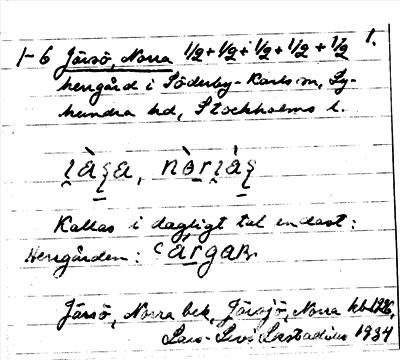 1-6 Järsö, Norra 1/2+1/2+1/2+1/2+1/2 1.
herrgård i Söderby-Karls sn, Ly-
hundra hd, Stockholms l.
Kallas i dagligt tal endast:
Herrgården:
Järsö, Norra bek, Järsjö, Norra kb 1926,
Lars-Levi Læstadius 1934